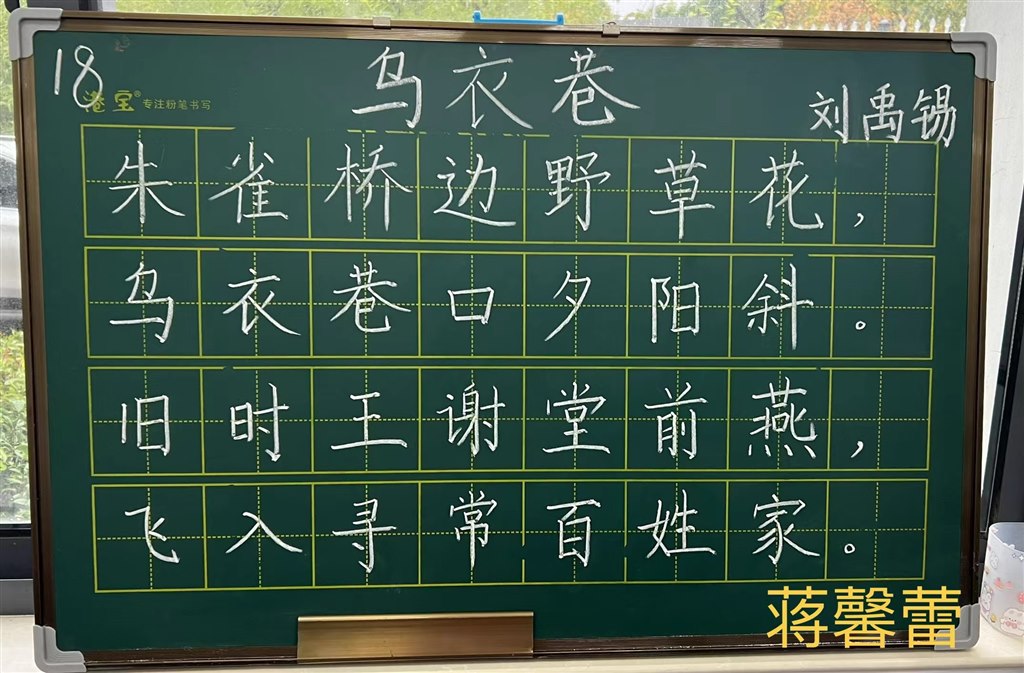 18
港宝® 专注粉笔书写
乌衣巷
刘禹锡
朱雀桥边野草花，
乌衣巷口夕阳斜。
旧时王谢堂前燕，
飞入寻常百姓家。
蒋馨蕾